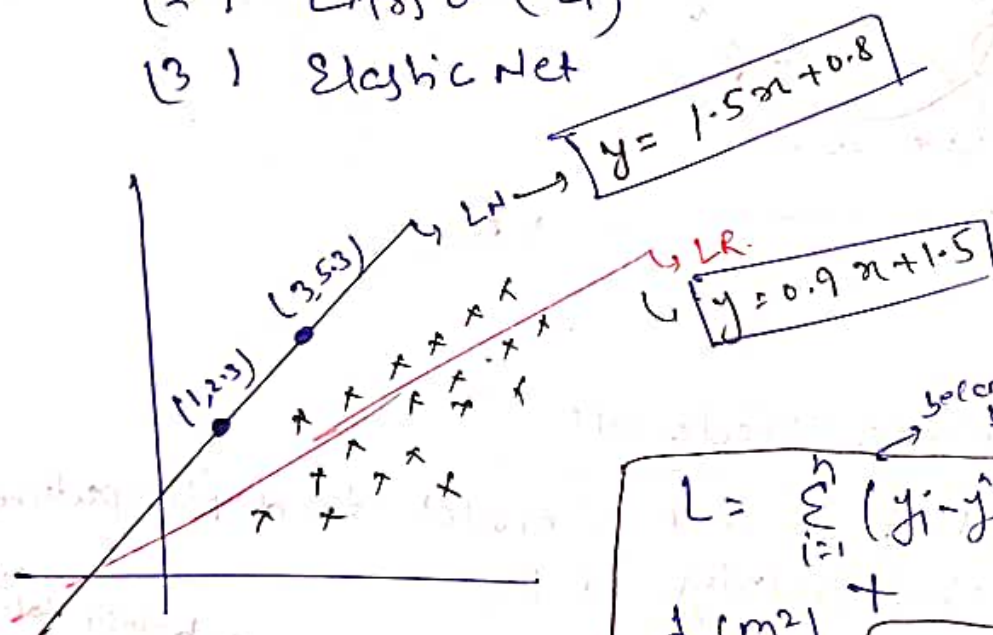 (3) Elastic Net
LN → y = 1.5x + 0.8
LR.
y = 0.9x + 1.5
(3,5.3)
(1,2.3)
n
L = Σ (yi - ŷ
i=1
+
(m²)